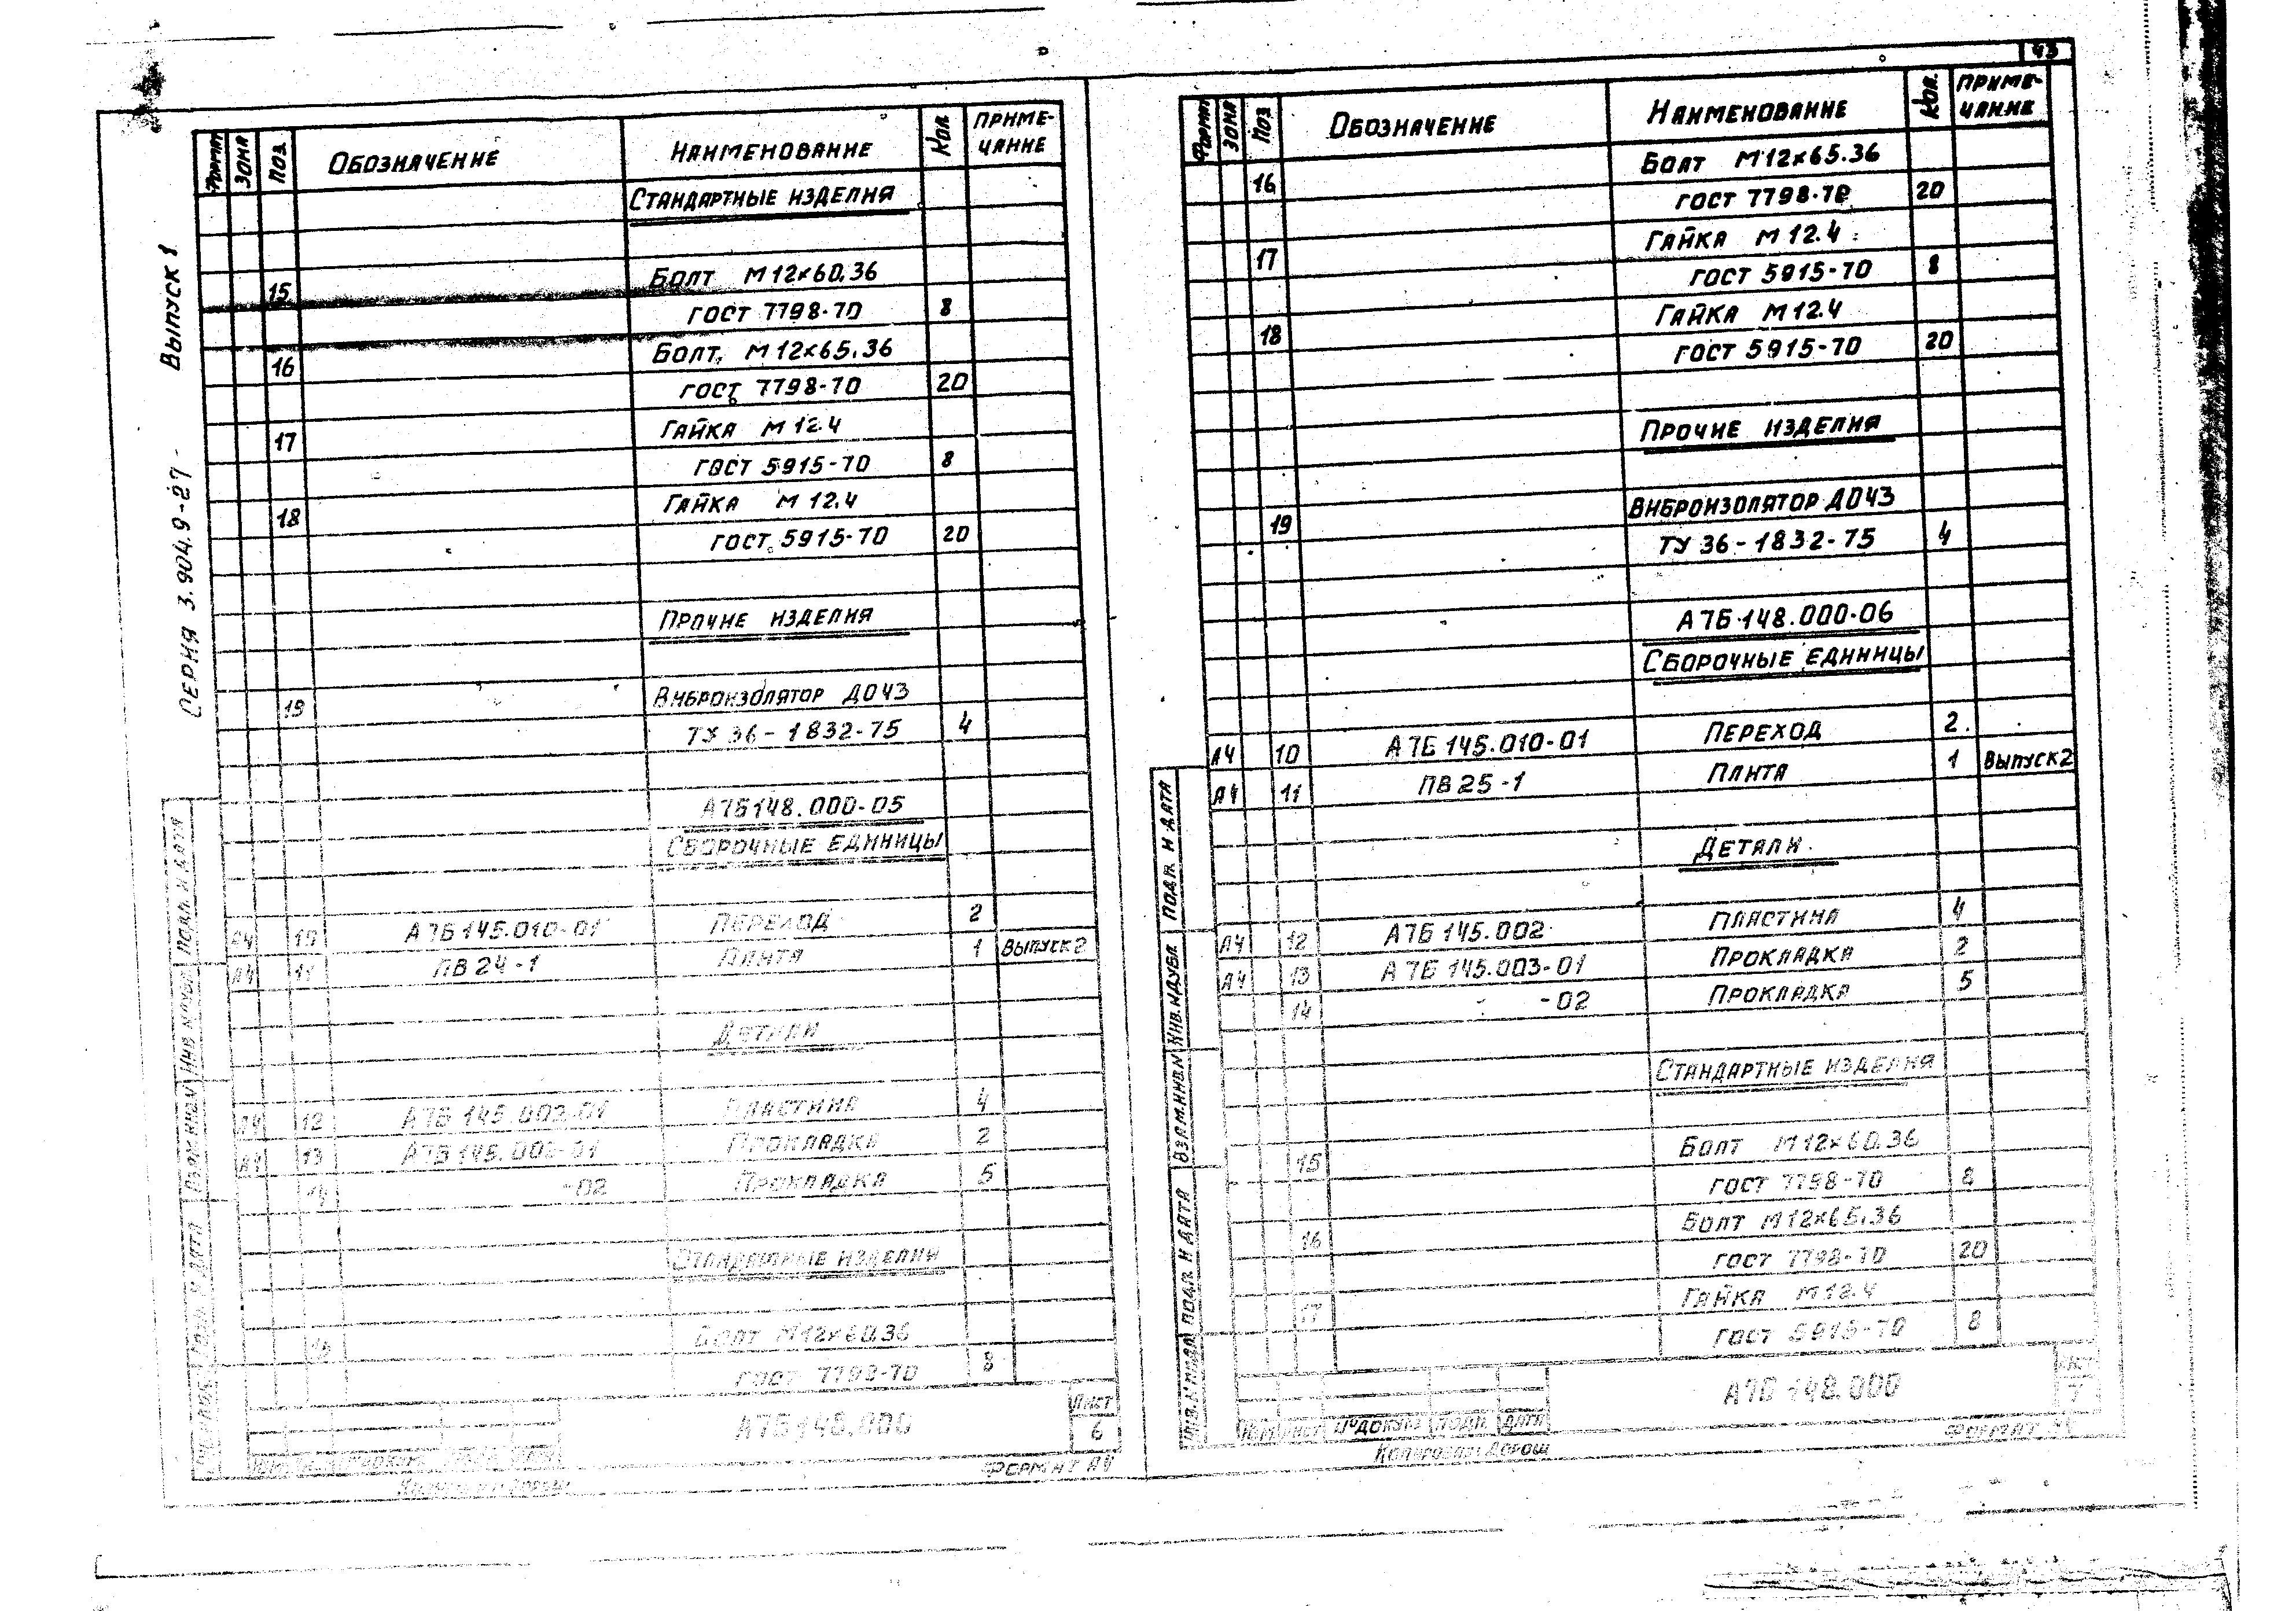 43
Серия 3.904.9-27 Выпуск 1
Формат Зона Поз. Обозначение Наименование Кол. Приме-
чание
Стандартные изделия
15 Болт М12×60.36
ГОСТ 7798-70 8
16 Болт М12×65.36
ГОСТ 7798-70 20
17 Гайка М12.4
ГОСТ 5915-70 8
18 Гайка М12.4
ГОСТ 5915-70 20
Прочие изделия
19 Виброизолятор ДО43
ТУ 36-1832-75 4
А7Б148.000-05
Сборочные единицы
А4 10 А7Б145.010-01 Переход 2
А4 11 ПВ24-1 Плита 1 Выпуск 2
Детали
А4 12 А7Б145.002-01 Пластина 4
А4 13 А7Б145.003-01 Прокладка 2
14 -02 Прокладка 5
Стандартные изделия
15 Болт М12×60.36
ГОСТ 7798-70 8
А7Б148.000
Лист
6
Формат А4
Формат Зона Поз Обозначение Наименование Кол. Приме-
чание
16 Болт М12×65.36
ГОСТ 7798-70 20
17 Гайка М12.4
ГОСТ 5915-70 8
18 Гайка М12.4
ГОСТ 5915-70 20
Прочие изделия
19 Виброизолятор ДО43
ТУ 36-1832-75 4
А7Б148.000-06
Сборочные единицы
А4 10 А7Б145.010-01 Переход 2
А4 11 ПВ25-1 Плита 1 Выпуск 2
Детали
А4 12 А7Б145.002 Пластина 4
А4 13 А7Б145.003-01 Прокладка 2
14 -02 Прокладка 5
Стандартные изделия
15 Болт М12×60.36
ГОСТ 7798-70 8
16 Болт М12×65.36
ГОСТ 7798-70 20
17 Гайка М12.4
ГОСТ 5915-70 8
Подп. и дата
Инв. № дубл
Взам. инв. №
Подп. и дата
Инв. № подл
А7Б148.000
Лист
7
Изм Лист № докум Подп. Дата
Копировал: Дорош
Формат А4